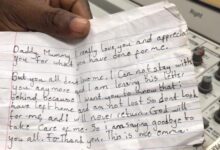 Daddy, Mummy I really love you and appreciate
you for what you have done for me.
But you all drove me. I can not stay with
you any more and I am leaving this letter
behind because I want you know that I
have left home and am not lost so dont look
for me, and I will never return. God will
take care of me. So I am saying goodbye to
you all. For Thank you. This is me emma.